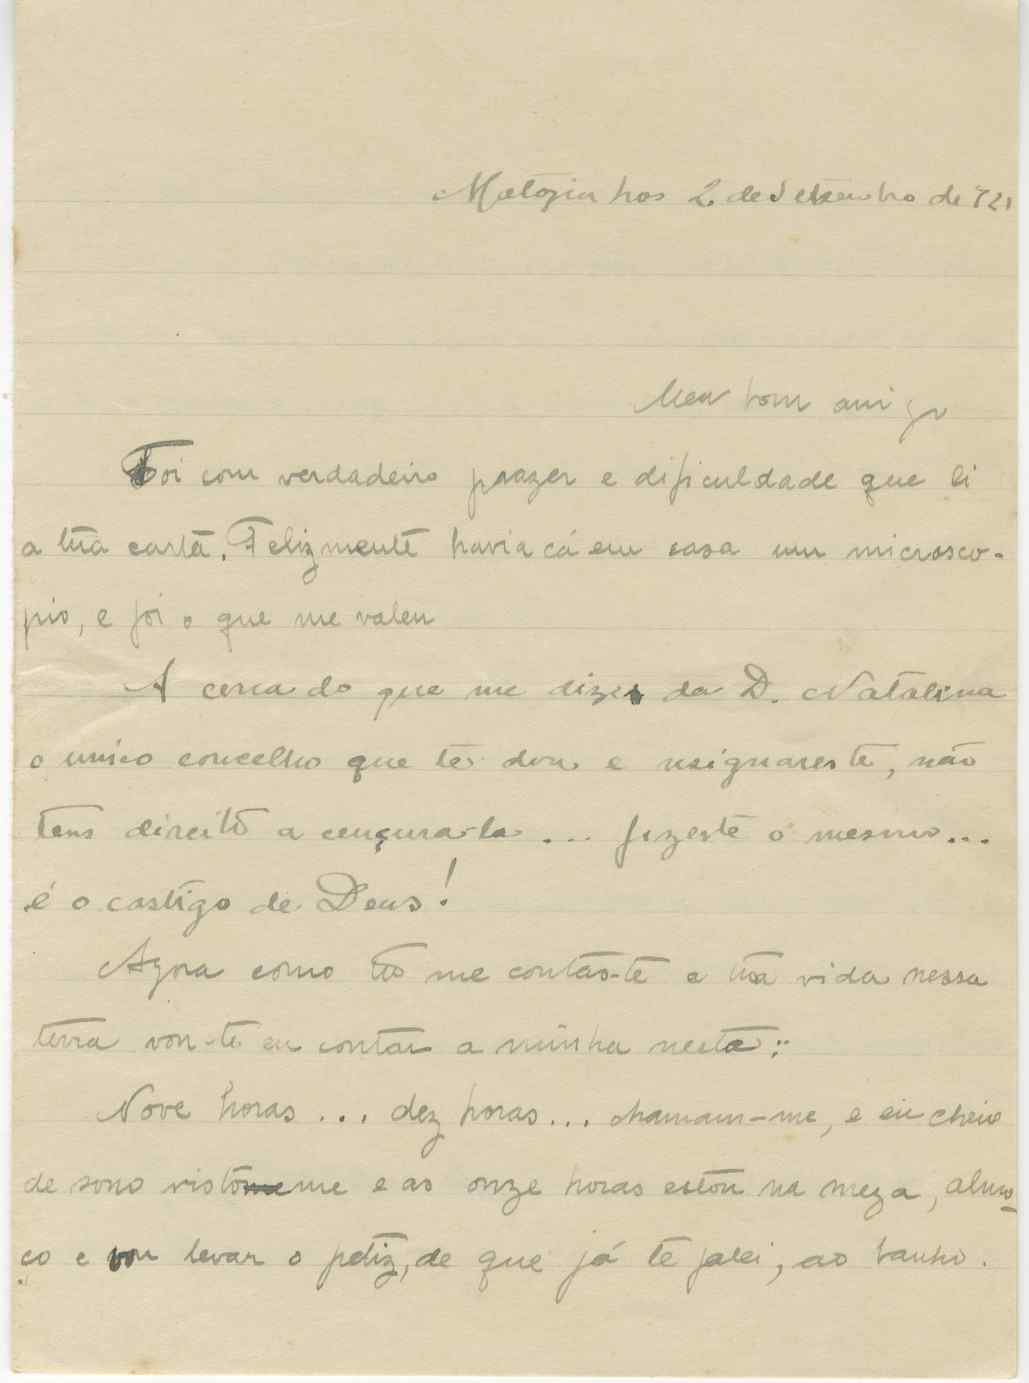 Matozinhos 2 de Setembro de 921
Meu bom amigo
Foi com verdadeiro prazer e dificuldade que li
a tua carta. Felizmente havia cá em casa um microsco-
pio, e foi o que me valeu
A cerca do que me dizes da D. Natalina
o unico concelho que te dou e resignares te, não
tens direito a cençura-la ... fizeste o mesmo...
é o castigo de Deus!
Agora como tu me contas-te a tua vida nessa
terra vou-te eu contar a minha nesta:
Nove horas ... dez horas... chamam-me, e eu cheio
de sono visto me e as onze horas estou na meza, almo-
ço e vou levar o petiz, de que já te falei, ao banho.